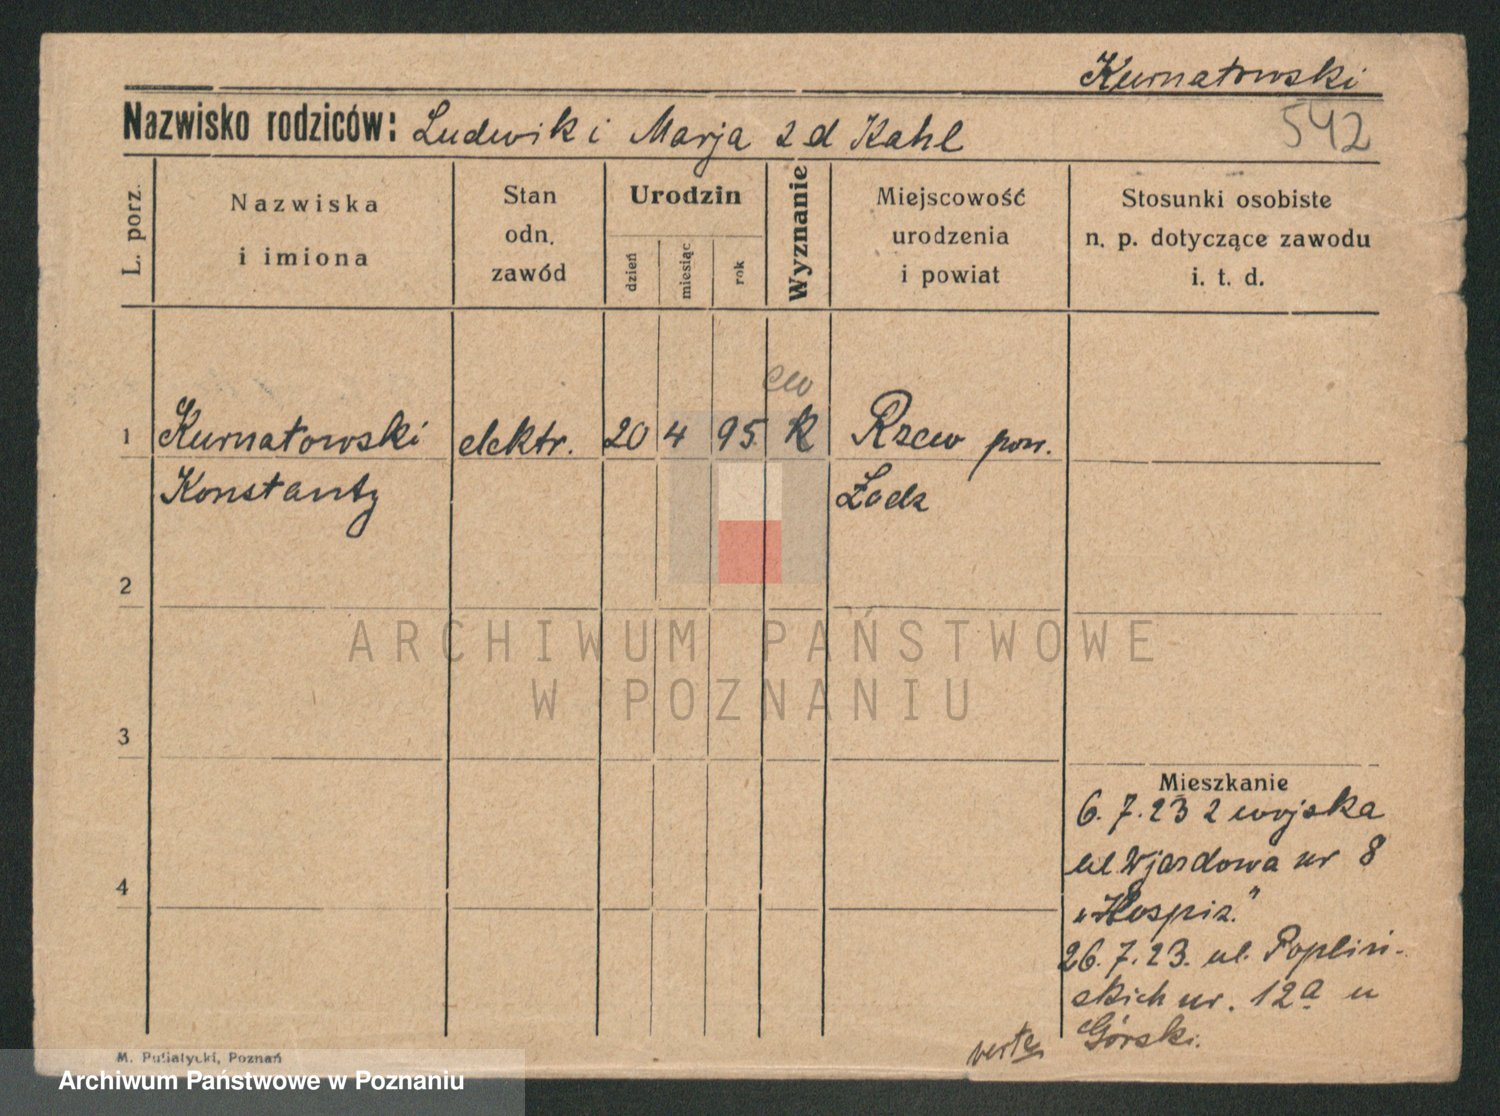 Kurnatowski
Nazwisko rodziców: Ludwik i Marja z d Kahl
542
L. porz.
Nazwiska
i imiona
Stan
odn.
zawód
Urodzin
dzień
miesiąc
rok
Wyznanie
Miejscowość
urodzenia
i powiat
Stosunki osobiste
n. p. dotyczące zawodu
i. t. d.
ew
1 Kurnatowski elektr. 20 4 95 K Rzew pow.
Konstanty Łodz
2
3
4
Mieszkanie
6. 7. 23 z wojska
ul Wjazdowa nr 8
„Hospiz."
26. 7. 23. ul. Popliń-
skich nr. 12a u
Górski.
verte
M. Putiatycki, Poznań
ARCHIWUM PAŃSTWOWE
W POZNANIU
Archiwum Państwowe w Poznaniu